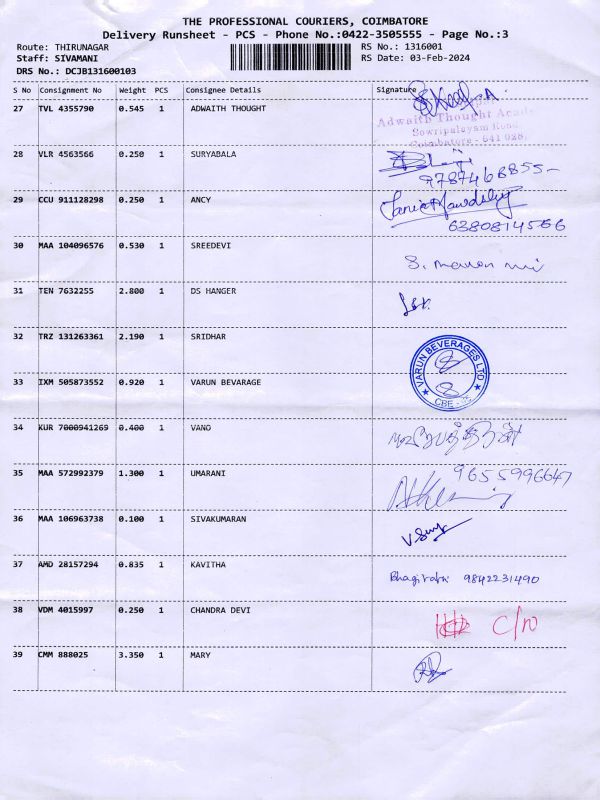 THE PROFESSIONAL COURIERS, COIMBATORE
Delivery Runsheet - PCS - Phone No.:0422-3505555 - Page No.:3
Route: THIRUNAGAR RS No.: 1316001
Staff: SIVAMANI RS Date: 03-Feb-2024
DRS No.: DCJB131600103
S No Consignment No Weight PCS Consignee Details Signature
27 TVL 4355790 0.545 1 ADWAITH THOUGHT
Adwaith Thought Acade
Sowripalayam Road
Coimbatore - 641 028.
28 VLR 4563566 0.250 1 SURYABALA
9787468855
29 CCU 911128298 0.250 1 ANCY
6380814566
30 MAA 104096576 0.530 1 SREEDEVI
31 TEN 7632255 2.800 1 DS HANGER
32 TRZ 131263361 2.190 1 SRIDHAR
VARUN BEVERAGES LTD
CBE - 25
33 IXM 505873552 0.920 1 VARUN BEVARAGE
34 KUR 7000941269 0.400 1 VANO
35 MAA 572992379 1.300 1 UMARANI 9655996647
36 MAA 106963738 0.100 1 SIVAKUMARAN
37 AMD 28157294 0.835 1 KAVITHA 9842231490
38 VDM 4015997 0.250 1 CHANDRA DEVI
39 CMM 888025 3.350 1 MARY